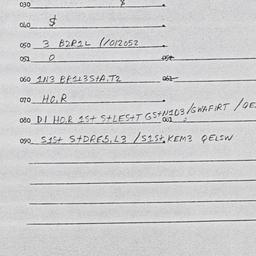 030
040 $
050 3 B2R1L 11012052
051 0 052
060 1N3 BF1L3S+A.T2 061
070 HO.R
080 DI HO.R 1S+ S+LES+T GS+N1D3/GWAFIRT /QE
090 S1S+ S+DRE5.L3 /S1S+ KEM3 QELSW